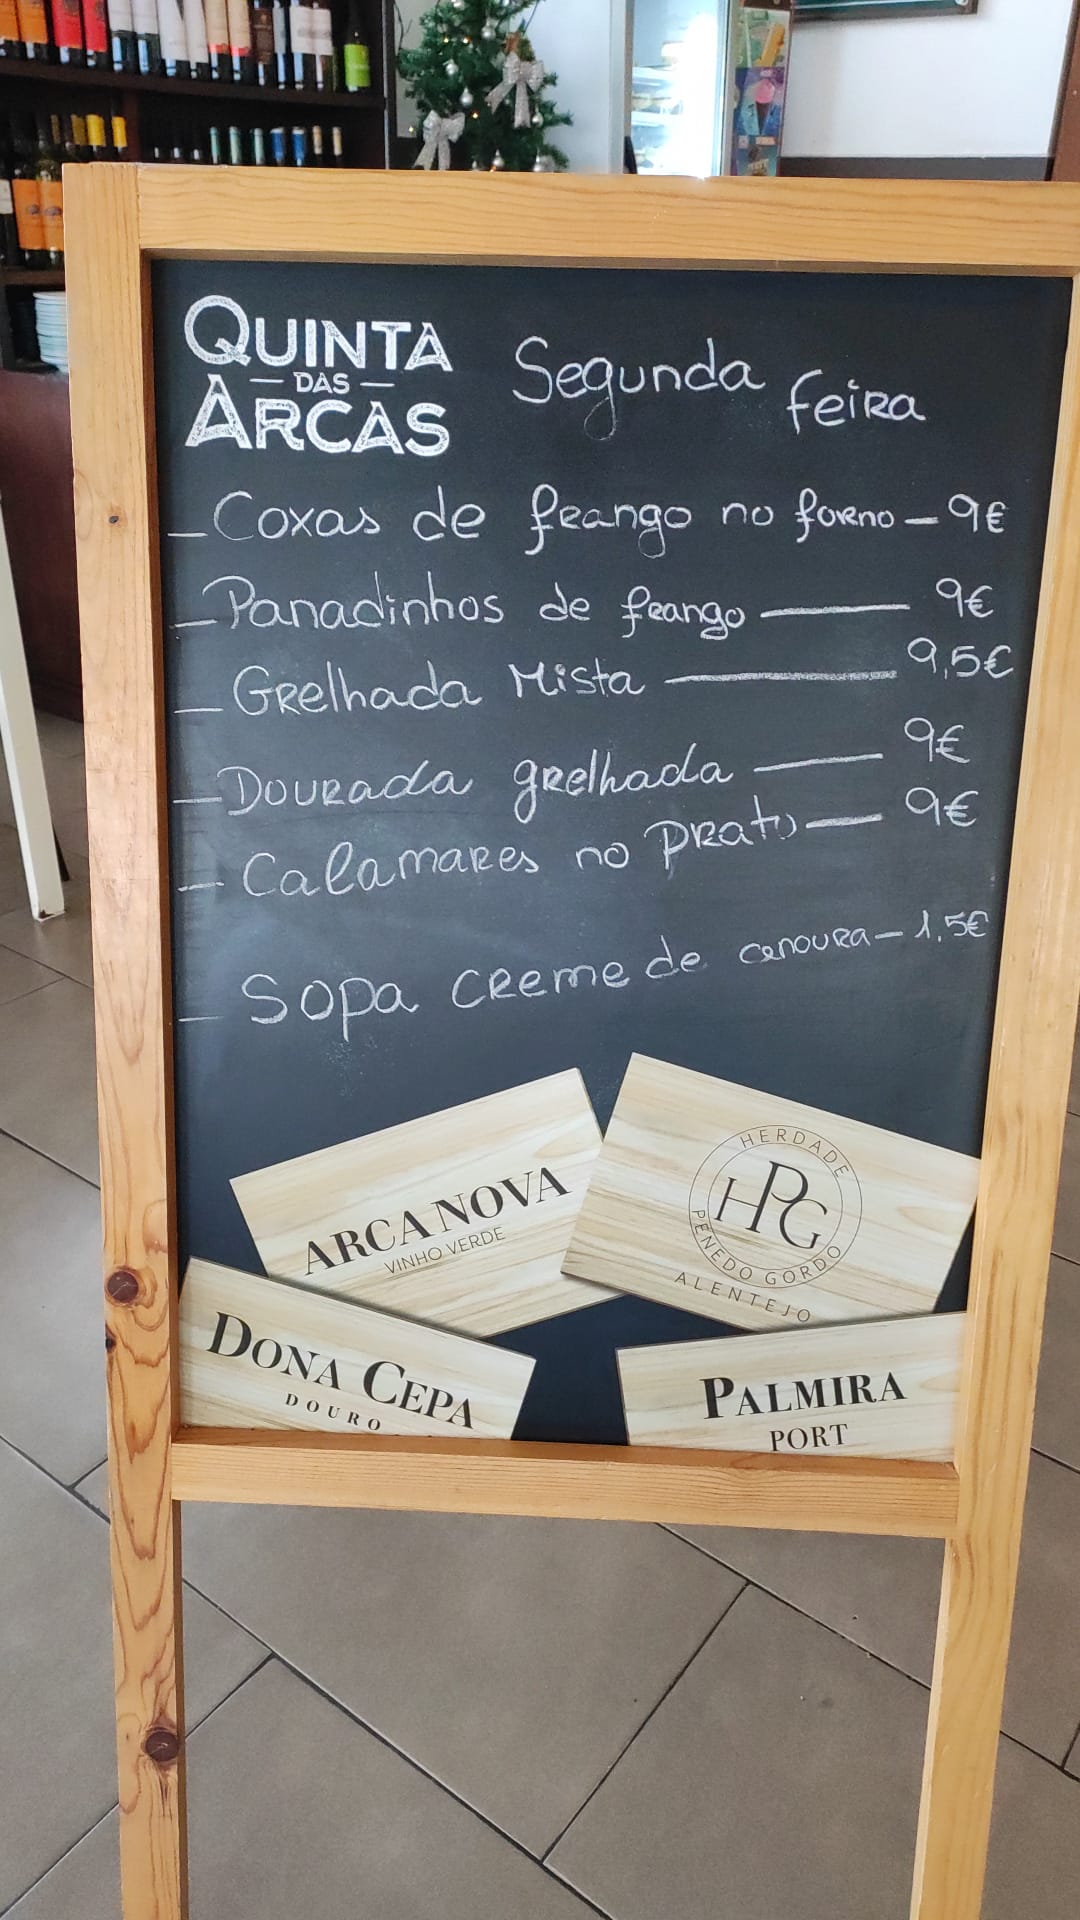 QUINTA
DAS
ARCAS
Segunda feira
- Coxas de frango no forno - 9€
- Panadinhos de frango - 9€
- Grelhada Mista - 9,5€
- Dourada grelhada - 9€
- Calamares no prato - 9€
- Sopa creme de cenoura - 1,5€
ARCA NOVA
VINHO VERDE
HERDADE
HPG
PENEDO GORDO
ALENTEJO
DONA CEPA
DOURO
PALMIRA
PORT